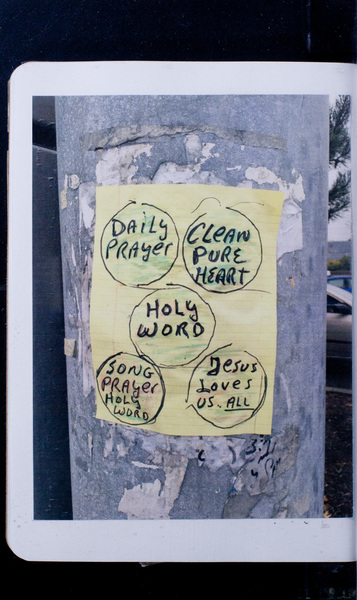 DAILY
PRAYER
CLEAN
PURE
HEART
HOLY
WORD
SONG
PRAYER
HOLY
WORD
JESUS
LOVES
US. ALL